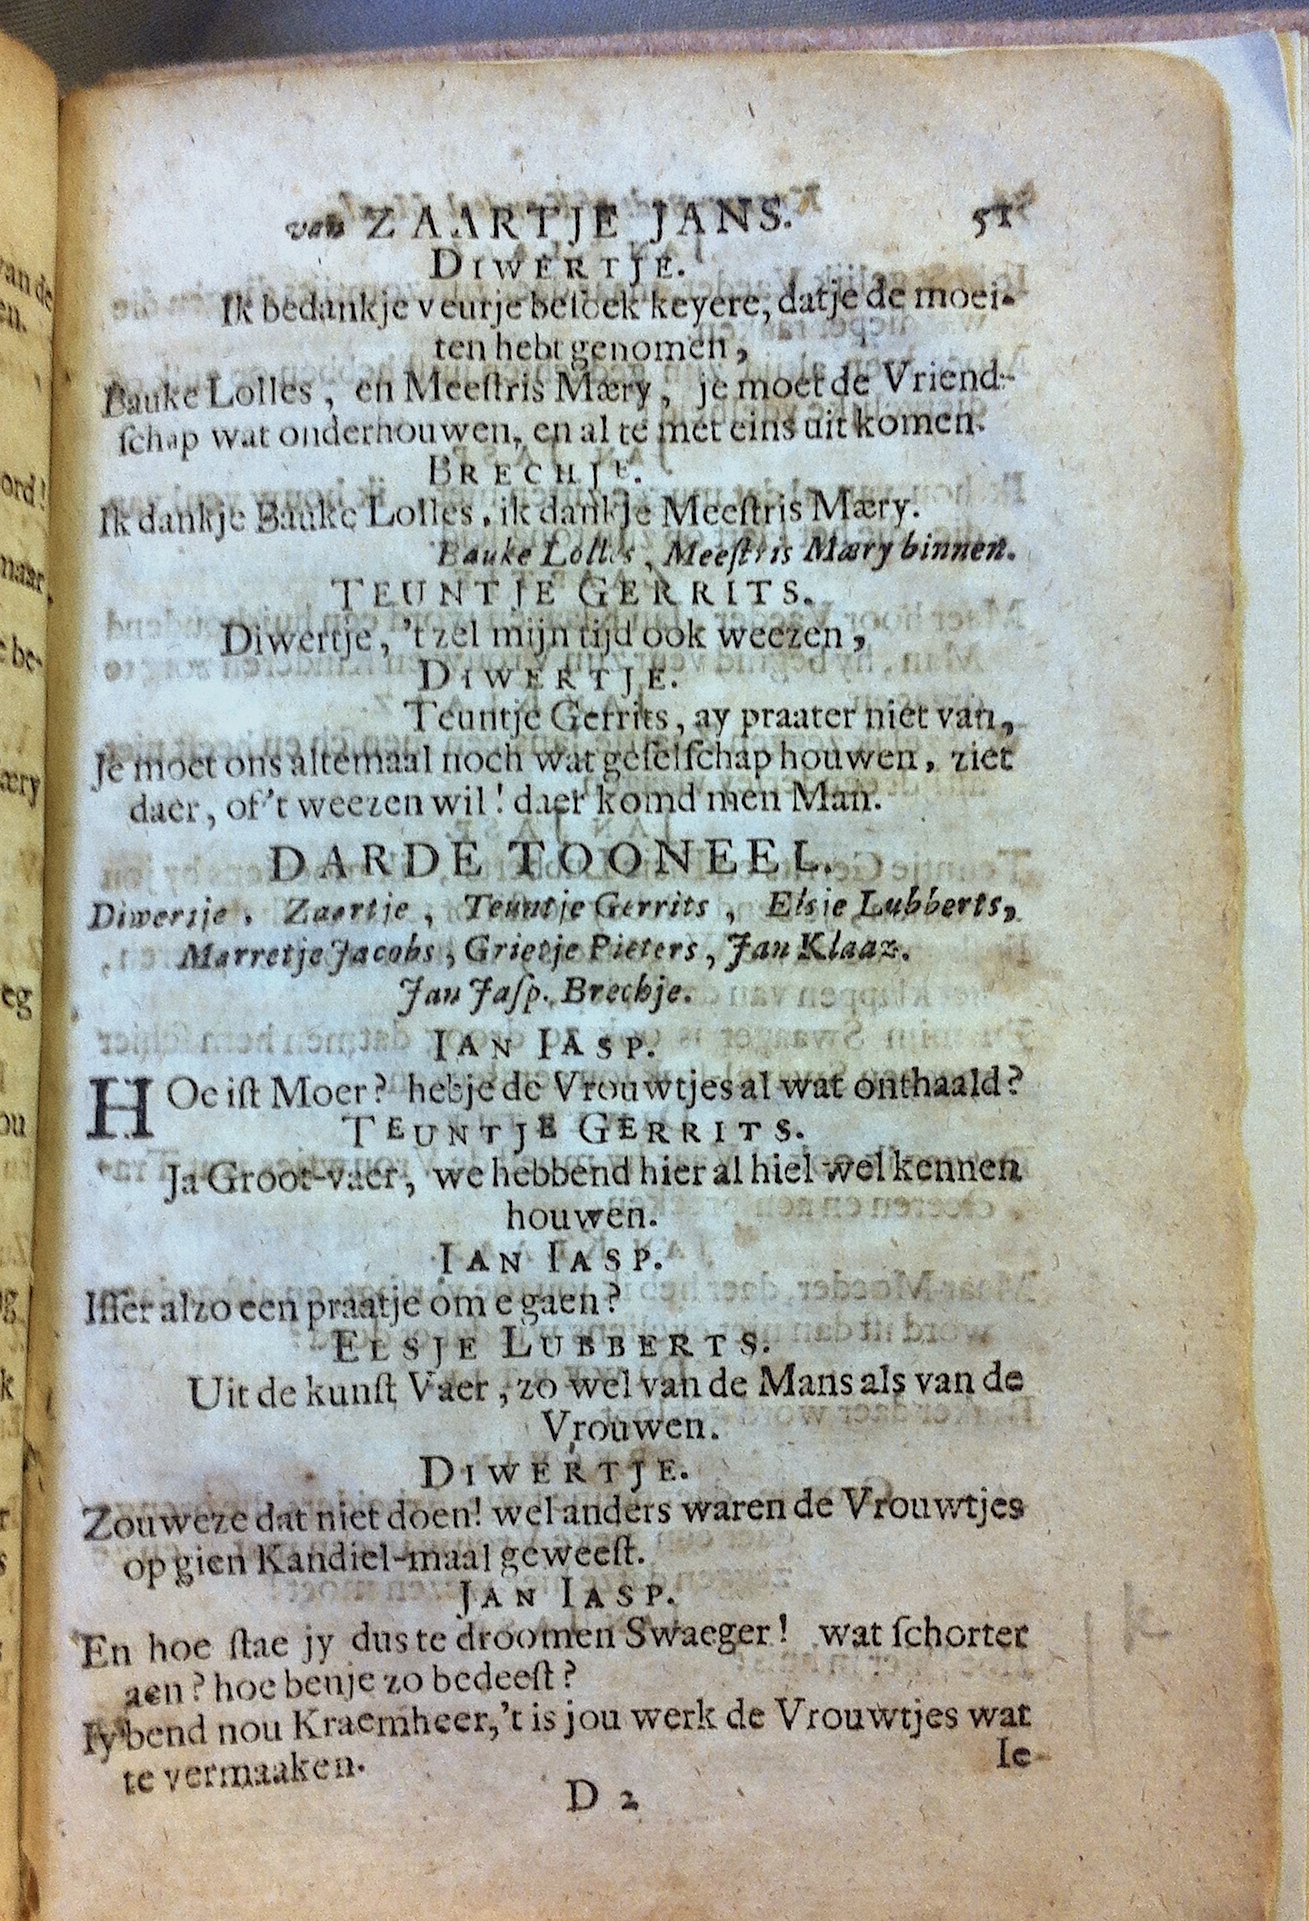 van ZAARTJE JANS. 51
DIWERTJE.
Ik bedankje veurje besoek keyere, datje de moei-
ten hebt genomen,
Bauke Lolles, en Meeſtris Mæry, je moet de Vriend-
ſchap wat onderhouwen, en al te met eins uit komen.
BRECHJE.
Ik dankje Bauke Lolles, ik dankje Meeſtris Mæry.
Bauke Lolles, Meeſtris Mæry binnen.
TEUNTJE GERRITS.
Diwertje, 't zel mijn tijd ook weezen,
DIWERTJE.
Teuntje Gerrits, ay praater niet van,
Je moet ons altemaal noch wat geſelſchap houwen, ziet
daer, of 't weezen wil! daer komd men Man.
DARDE TOONEEL.
Diwertje, Zaartje, Teuntje Gerrits, Elsje Lubberts,
Marretje Jacobs, Grietje Pieters, Jan Klaaz.
Jan Jaſp. Brechje.
IAN IASP.
HOe iſt Moer? hebje de Vrouwtjes al wat onthaald?
TEUNTJE GERRITS.
Ja Groot-vaer, we hebbend hier al hiel wel kennen
houwen.
IAN IASP.
Iſſer alzo een praatje om e gaen?
ELSJE LUBBERTS.
Uit de kunſt Vaer, zo wel van de Mans als van de
Vrouwen.
DIWERTJE.
Zouweze dat niet doen! wel anders waren de Vrouwtjes
op gien Kandiel-maal geweeſt.
JAN IASP.
En hoe ſtae jy dus te droomen Swaeger! wat ſchorter
aen? hoe benje zo bedeeſt?
Iy bend nou Kraemheer, 't is jou werk de Vrouwtjes wat
te vermaaken.
Ie
D 2